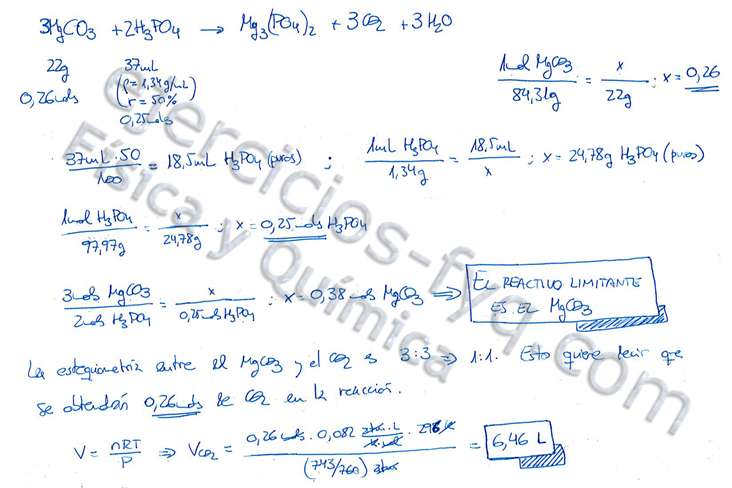 3MgCO3 + 2H3PO4 → Mg3(PO4)2 + 3CO2 + 3H2O
22g 37mL
0,26mols (ρ=1,34g/mL r=50%)
0,25mols
1mol MgCO3/84,31g = x/22g ; x=0,26
37mL·50/100 = 18,5mL H3PO4 (puros) ; 1mL H3PO4/1,34g = 18,5mL/x ; x=24,78g H3PO4 (puros)
1mol H3PO4/97,97g = x/24,78g ; x=0,25mols H3PO4
3mols MgCO3/2mols H3PO4 = x/0,25mols H3PO4 ; x=0,38mols MgCO3 ⇒ EL REACTIVO LIMITANTE
ES EL MgCO3
La estequiometría entre el MgCO3 y el CO2 es 3:3 ⇒ 1:1. Esto quiere decir que
se obtendrán 0,26mols de CO2 en la reacción.
V = nRT/P ⇒ VCO2 = 0,26 mols · 0,082 atm·L/K·mol · 298K/(743/760) atm = 6,46 L
ejercicios-fyq.com
Física y Química